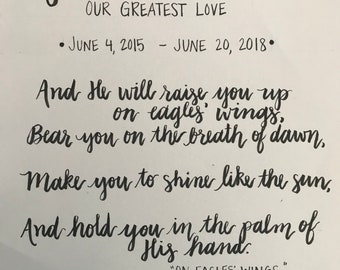 OUR GREATEST LOVE
• JUNE 4, 2015 - JUNE 20, 2018 •
And He will raise you up
on eagles' wings,
Bear you on the breath of dawn,
Make you to shine like the sun,
And hold you in the palm of
His hand.
"ON EAGLES' WINGS"